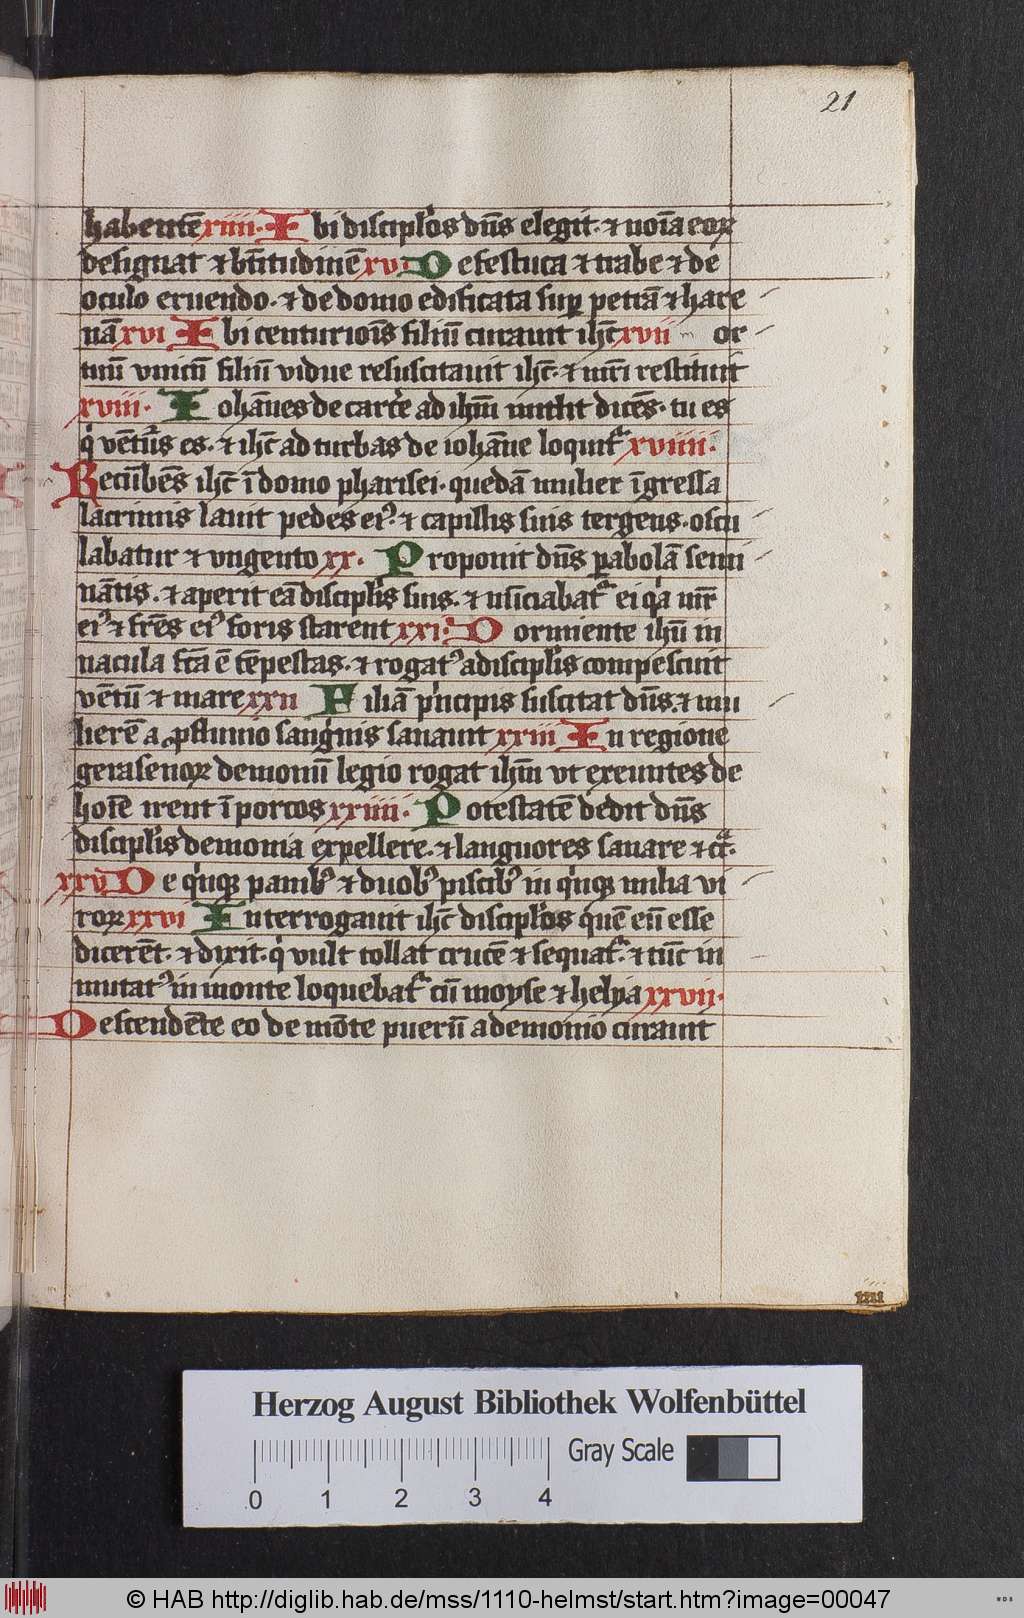 21
habentē xiiii. I bi discipl'os dn̄s elegit. ⁊ noīa eoꝝ
designat ⁊ bt̄itudinē xv. D e festuca ⁊ trabe ⁊ de
oculo eruendo. ⁊ de domo edificata suꝑ petrā ⁊ hare
nā xvi I bi centurioīs filiū curauit ih̄c xvii or
tuū vnicū filiū vidue resuscitauit ih̄c. ⁊ mr̄i restituit
xviii. I ohānes de carc̄e ad ih̄m mitht dicēs. tu es
q̇ vētur̄s es. ⁊ ih̄c ad turbas de iohāne loquit᷑ xviiii.
Recūbēs ih̄c ī domo pharisei. quedā mulier īgressa
lacrimis lauit pedes ei᷒. ⁊ capillis suis tergens. oscu
labatur ⁊ vngento xx. P roponit dn̄s ꝑabolā semi
nātis. ⁊ aperit eā discipl'is suis. ⁊ nūciabat᷑ ei qͥa mr̄
ei᷒ ⁊ fr̄es ei᷒ foris starent xxi. D ormiente ih̄u in
nacula fc̄a ē tēpestas. ⁊ rogat᷒ a discipl'is compescuit
vētū ⁊ mare xxii F iliā pͥncipis suscitat dn̄s. ⁊ mu
lierē a ꝓfluuio sangͥnis sanauit xxiii I n regione
gerasenoꝝ demoniū legio rogat ih̄m vt exeuntes de
hoīe irent ī porcos xxiiii. P otestatē dedit dn̄s
discipl'is demonia expellere. ⁊ languores sanare ⁊ ct̄ᵃ.
xxv D e qͥnqꝫ panib᷒ ⁊ duob᷒ piscib᷒ in qͥnqꝫ milia vi
roꝝ xxvi I nterrogauit ih̄c discipl'os quē eū esse
dicerēt. ⁊ dixit. qͥ vult tollat crucē ⁊ sequat᷑. ⁊ tūc in
mutat᷒ in monte loquebat᷑ cū moyse ⁊ helya xxvii.
Descendēte eo de mōte puerū a demonio curauit
iiii
Herzog August Bibliothek Wolfenbüttel
Gray Scale
0 1 2 3 4
© HAB http://diglib.hab.de/mss/1110-helmst/start.htm?image=00047